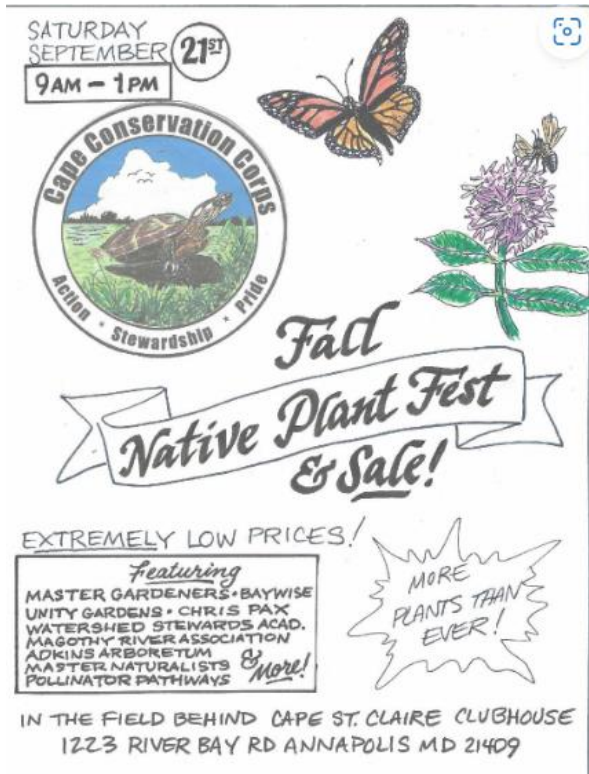 SATURDAY
SEPTEMBER 21ST
9AM - 1PM
Cape Conservation Corps
Action * Stewardship * Pride
Fall
Native Plant Fest
& Sale!
EXTREMELY LOW PRICES!
Featuring
MASTER GARDENERS • BAYWISE
UNITY GARDENS • CHRIS PAX
WATERSHED STEWARDS ACAD.
MAGOTHY RIVER ASSOCIATION
ADKINS ARBORETUM
MASTER NATURALISTS
POLLINATOR PATHWAYS
& More!
MORE
PLANTS THAN
EVER!
IN THE FIELD BEHIND CAPE ST. CLAIRE CLUBHOUSE
1223 RIVER BAY RD ANNAPOLIS MD 21409